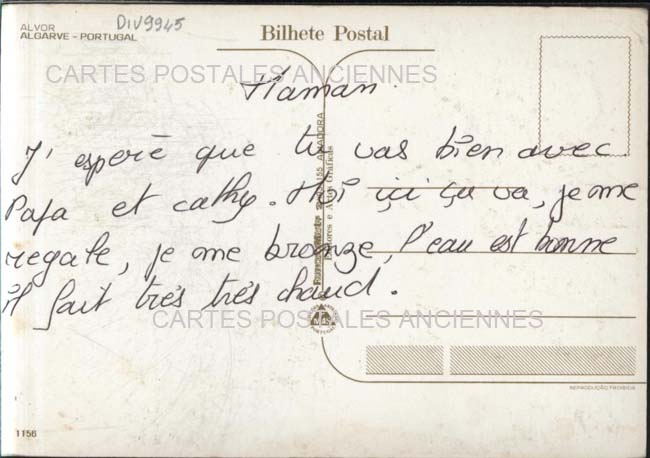 ALVOR
ALGARVE - PORTUGAL
DIV9945
Bilhete Postal
CARTES POSTALES ANCIENNES
Maman.
J'espère que tu vas bien avec
Papa et cathy. Moi içi ça va, je me
regale, je me bronze, l'eau est bonne
il fait très très chaud.
CARTES POSTALES ANCIENNES
AMADORA
Editores e Artes Gráficas
PORTUGAL
REPRODUÇÃO PROIBIDA
1156